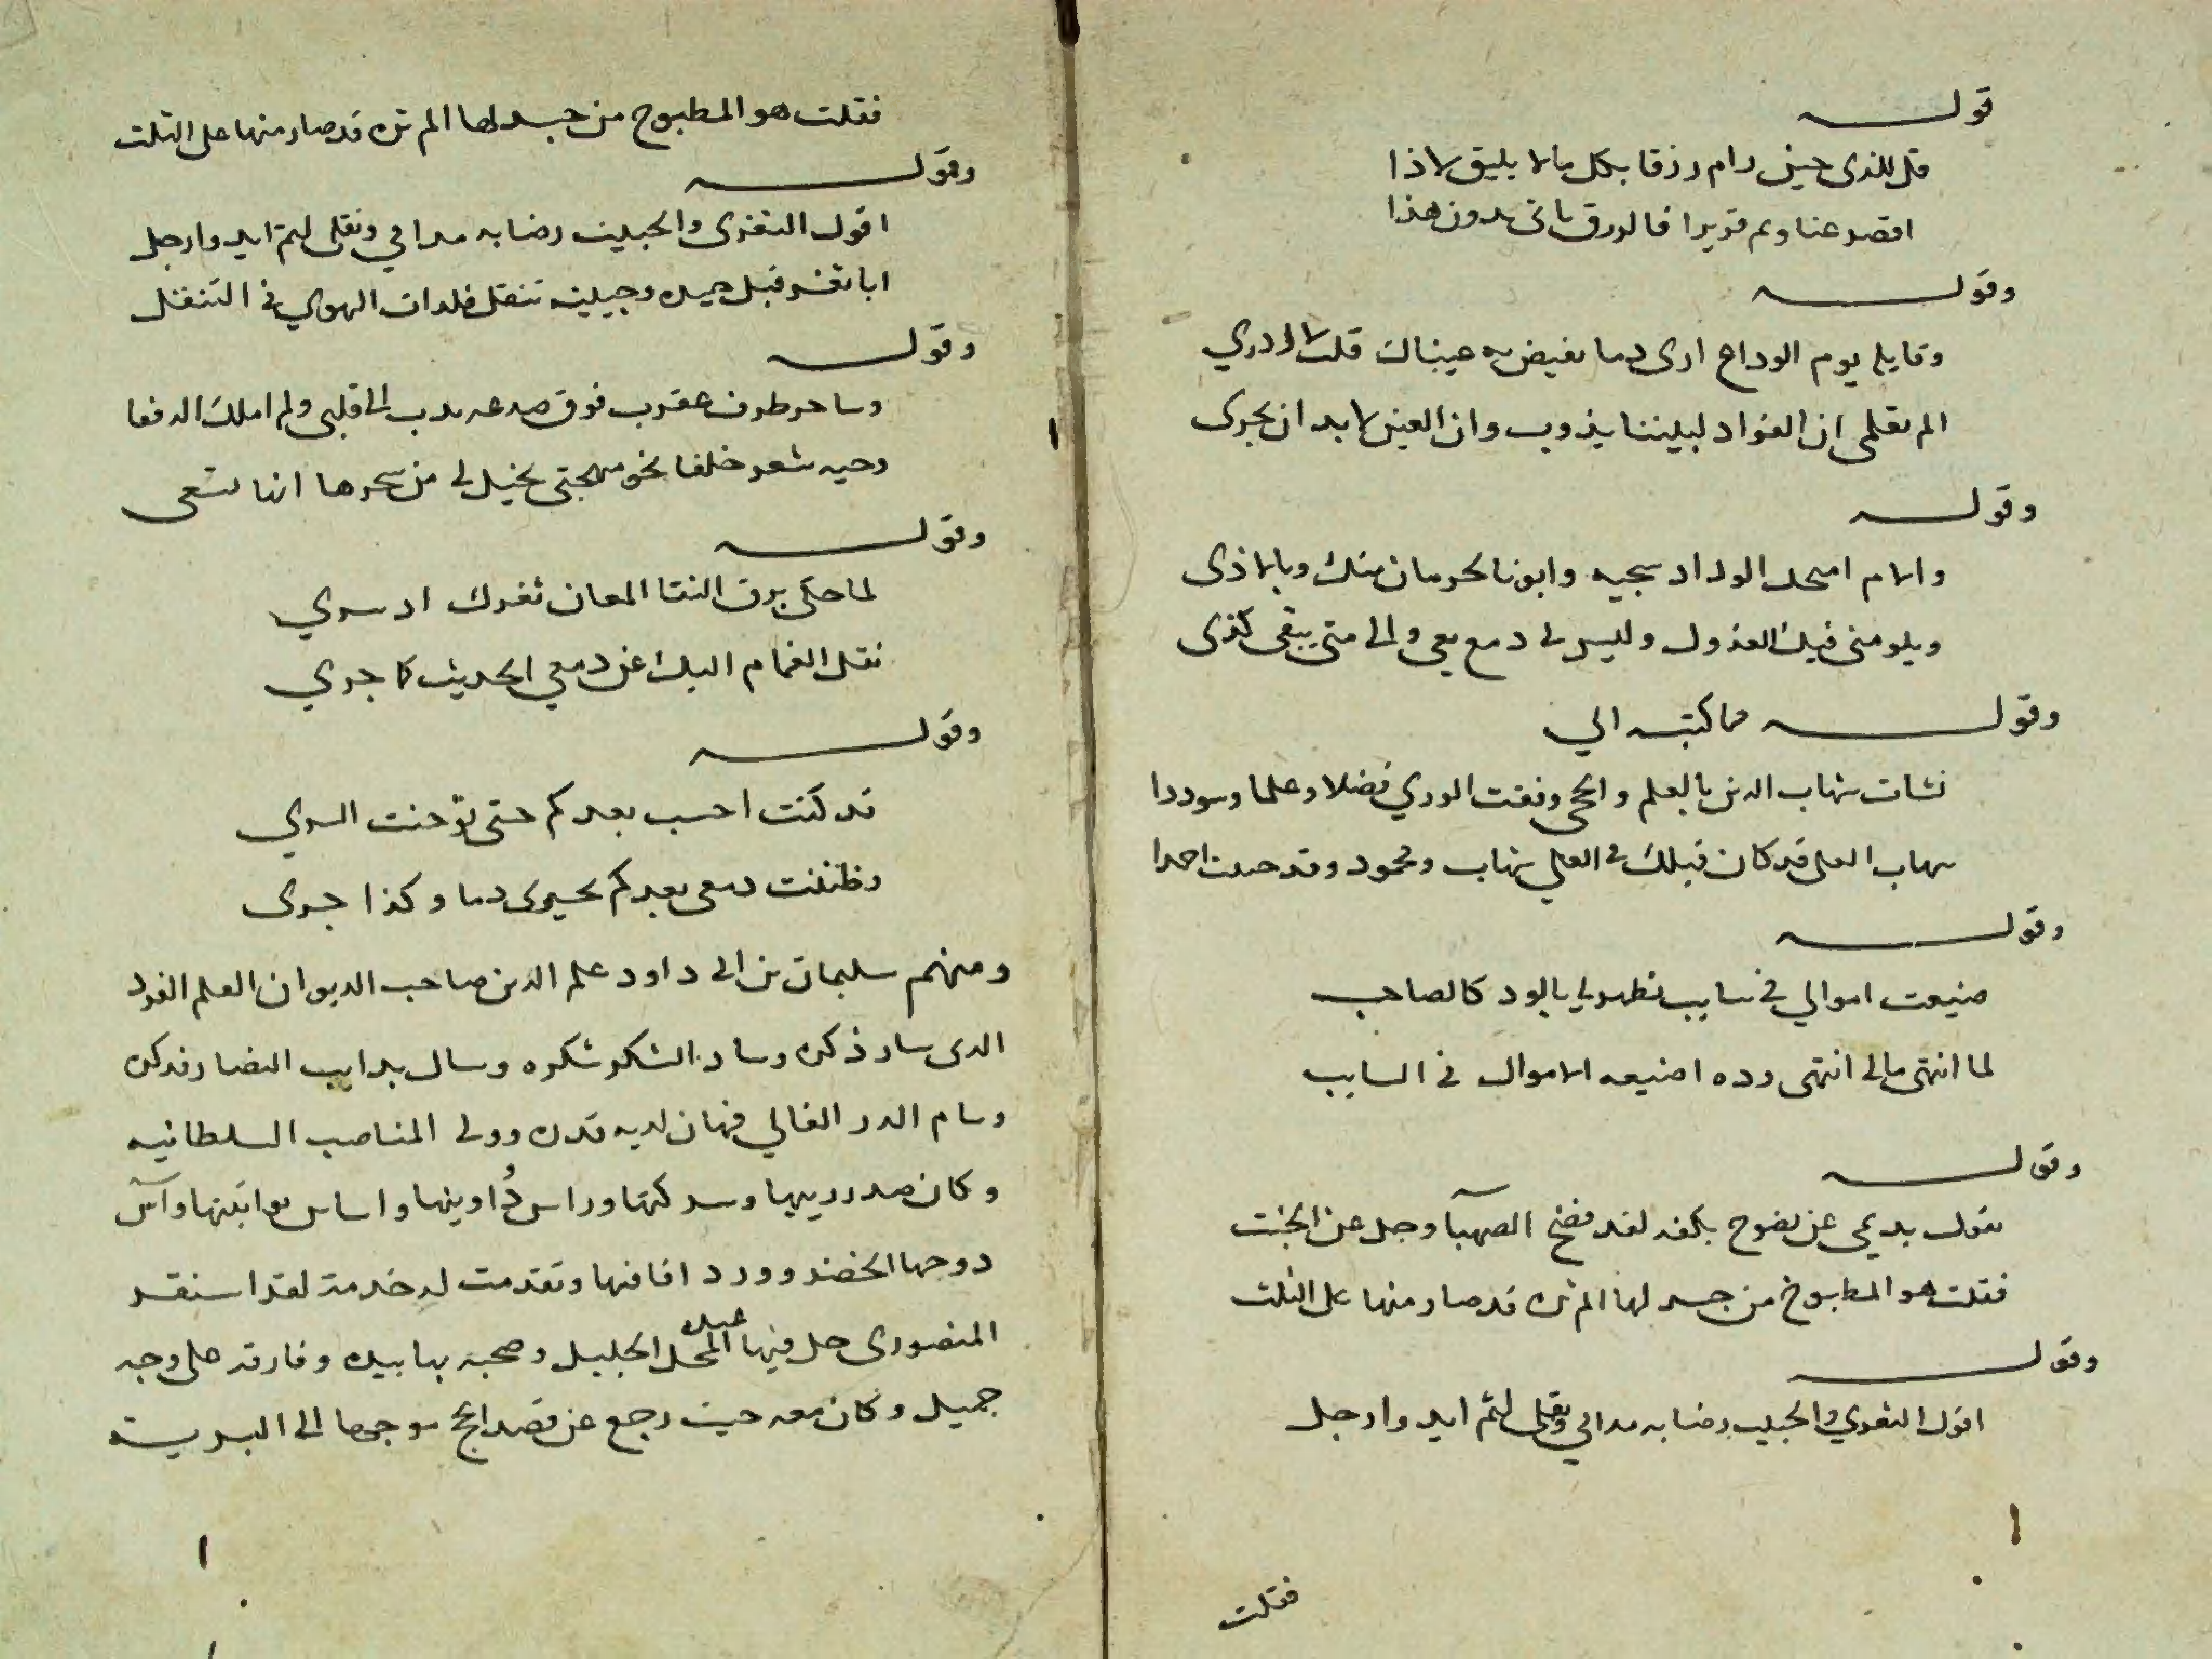 قوله
قل للذى حين رام رزقا بكل مالا يليق لاذا
اقصر عنا ونم قريرا فالرزق ياتى بدون هذا
وقوله
وقايله يوم الوداع ارى دما تفيض به عيناك قلت لا ادري
الم تعلمى ان الفواد لبيننا يذوب وان العين لا بد ان تجرى
وقوله
والام امنحك الوداد سجيه وابوء بالحرمان منك وبالاذى
ويلومنى فيك العذول وليس لى دمع يعى والى متى يبقى كذى
وقوله مما كتبته الي
نشات شهاب الدين بالعلم والحجى وفقت الوري فضلا وعلما وسوددا
شهاب العلى قد كان قبلك فى العلى شهاب ومحمود وقد صرت احمدا
وقوله
ضيعت اموالي في سايب يظهر لي بالود كالصاحب
لما انتهى مالى انتهى وده اضيعه الاموال فى السايب
وقوله
يقول نديمى عن نضوح بكفه لقد فضح الصهبا وجل عن الخبث
فقلت هو المطبوخ من حسد لها الم تره قد صار منها على الثلث
وقوله
اقول لثغري والحبيب رضابه مدامي ونقلى لثم ايد وارجل
فقلت
فقلت هو المطبوح من حسد لها الم تره قد صار منها على الثلث
وقوله
اقول لثغرى والحبيب رضابه مدامي ونقلى لثم ايد وارجل
ايا ثغر قبل جيده وجبينه تنقل فلذات الهوي فى التنقل
وقوله
وساحر طرف عقرب فوق صدغه تدب الى قلبى ولم املك الدفعا
وحيه شعر خلفا نحو مهجتى تخيل لى من سحرها انها تسعى
وقوله
لما حكى برق النقا لمعان ثغرك اذ سري
نقل الغمام اليك عن دمعي الحديث كما جري
وقوله
قد كنت احسب بعدكم حتى توحنت السري
وظننت دمعى بعدكم يجرى دما وكذا جرى
ومنهم سليمان بن ابى داود علم الدين صاحب الديوان العلم الفرد
الدى سار ذكره وساد الشكر شكره وسال بدايب النضار فدكره
وسام الدر الغالي فهان لديه قدره وولى المناصب السلطانيه
وكان صدر رييها وسر كتها وراس دواوينها واساس قوانينها وآس
دوحها الخضر وورد افاقها وتقدمت له خدمة لقراسنقر
المنصورى حل فيها عنده المحل الجليل وصحبه بها بيده وفارقه على وجه
جميل وكان معه حين رجع عن قصد الحج موجها الى البرية